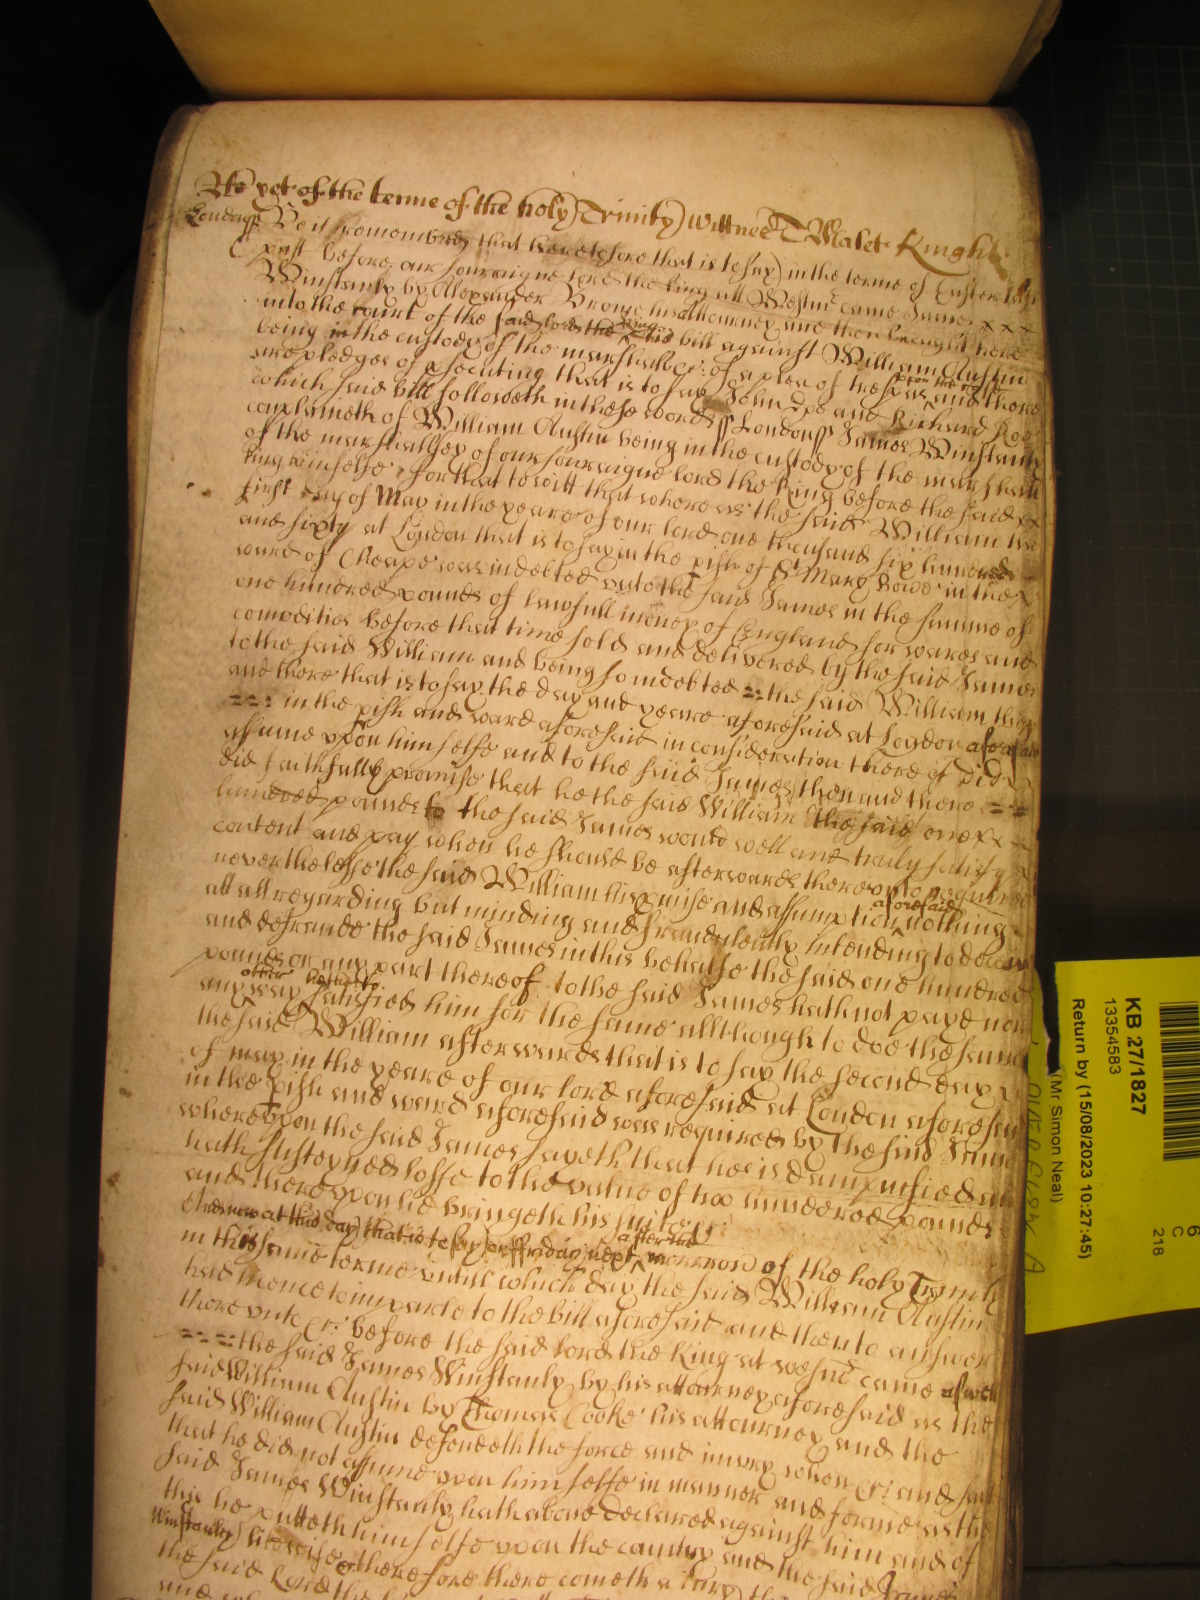 As yet of the terme of the holy Trinity Wittnes T Malet Knight
London ss Be it remembred that heretofore that is to say in the terme of Easter last
past before our soveraigne lord the king att Westmr came James
Winstanly by Alexander Brome his attourney and then brought here
into the court of the said lord the king his bill against William Austin
being in the custody of the marshall &c: of a plea of trespas upon the case and there
are pledges of psecuting that is to say John Doe and Richard Roe
which said bill followeth in these words ss London ss James Winstanly
complaineth of William Austin being in the custody of the marshall
of the marshallsey of our soveraigne lord the King before the said
king himselfe, for that to witt that whereas the said William the
first day of May in the yeare of our lord one thousand six hundred
and sixty at London that is to say in the pish of St Mary Bowe in the
ward of Cheape was indebted unto the said James in the summe of
one hundred pounds of lawfull money of England for wares and
comodities before that time sold and delivered by the said James
to the said William and being so indebted the said William then
and there that is to say the day and yeare aforesaid at London aforesaid
in the pish and ward aforesaid in consideration thereof did
assume upon himselfe and to the said James then and there
did faithfully promise that he the said William the said one
hundred pounds to the said James would well and truly satisfy
content and pay when he should be afterwards thereunto required
neverthelesse the said William his pmise and assumption aforesaid nothing
att all regarding but minding and fraudulently intending to deceive
and defraude the said James in this behalfe the said one hundred
pounds or any part thereof to the said James hath not payd nor
any way otherwise satisfied him for the same allthough to doe the same
the said William afterwards that is to say the second day
of may in the yeare of our lord aforesaid at London aforesaid
in the pish and ward aforesaid was required by the said James
whereupon the said James sayeth that hee is damnified and
hath susteyned losse to the value of two hundred pounds
and thereupon he bringeth his suite &c:
And now at this day that is to say on ffriday next after the morrow of the holy Trinity
in this same terme untill which day the said William Austin
had licence to imparle to the bill aforesaid and then to answer
thereunto &c: before the said lord the King at westmr came as well
the said James Winstanly by his attourney aforesaid as the
said William Austin by Thomas Cooke his attourney and the
said William Austin defendeth the force and iniury when &c: and saith
that he did not assume upon himselfe in manner and forme as the
said James Winstanly hath above declared against him and of
this he putteth himselfe upon the country and the said James
Winstanly likewise &c therefore there cometh a Jury
the said Lord the
KB 27/1827
13354583
Return by (15/08/2023 10:27:45)
(Mr Simon Neal)
6
C
218